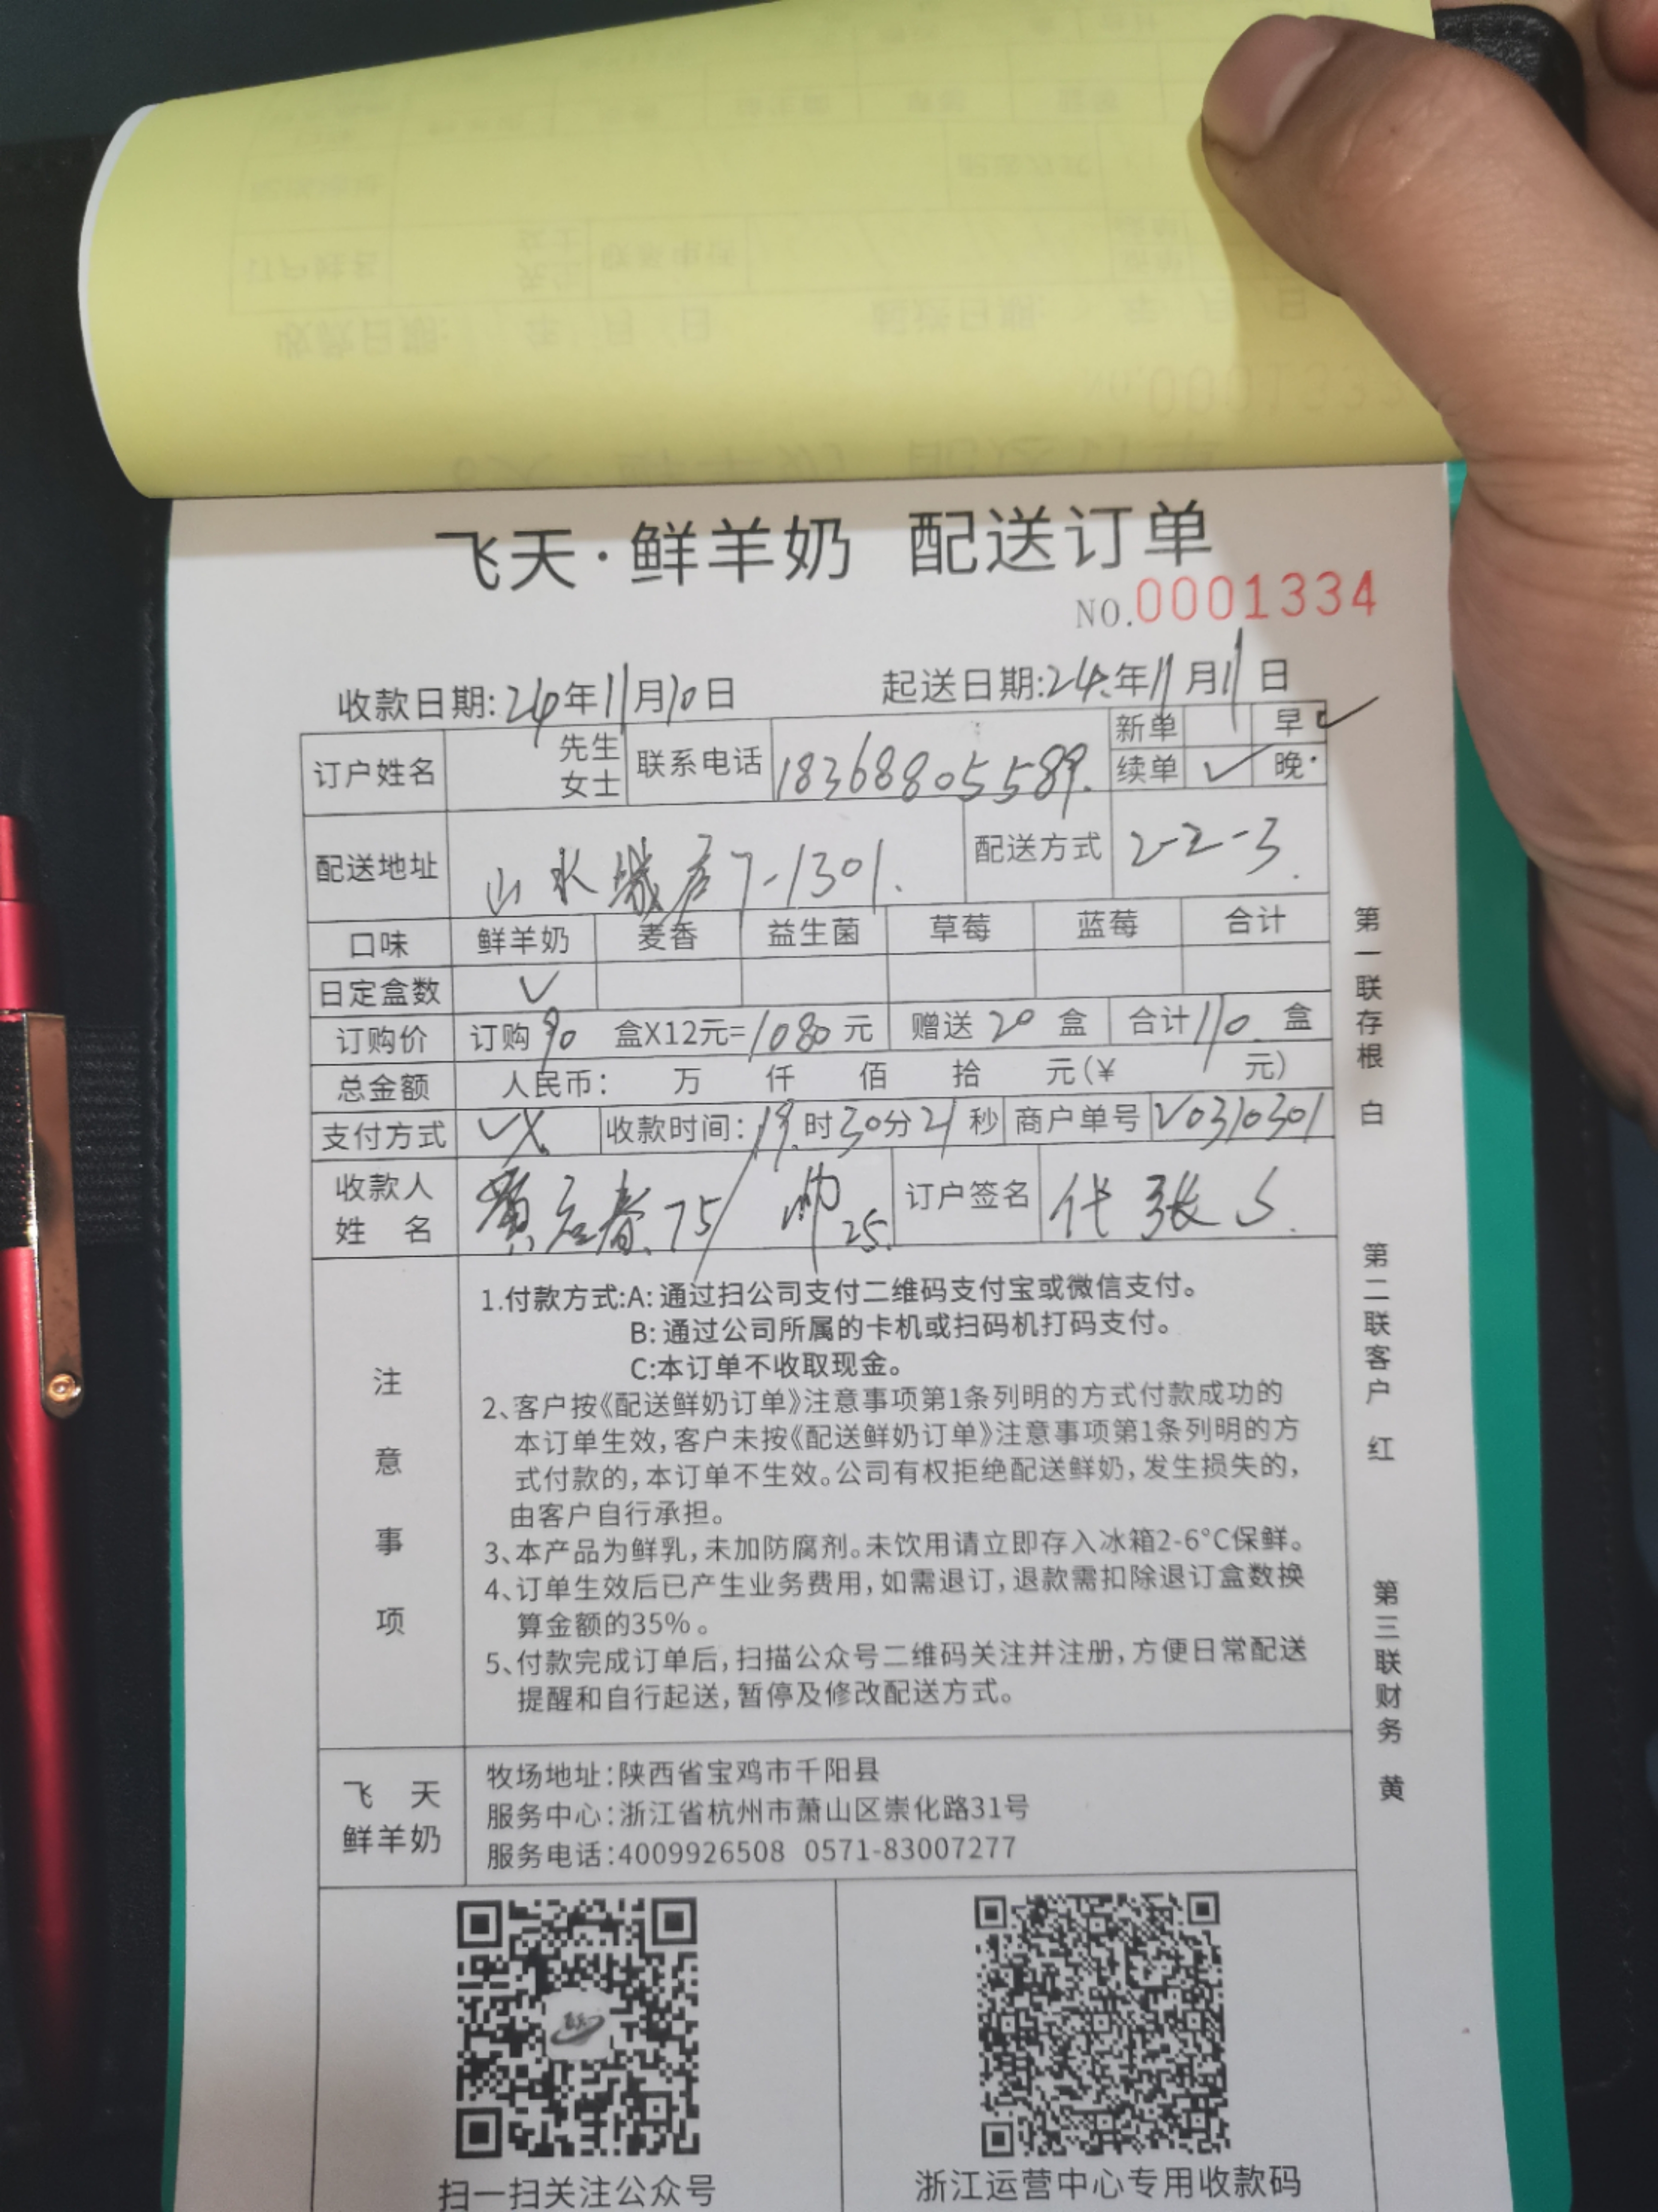 飞天·鲜羊奶 配送订单
NO.0001334
收款日期:24年11月10日 起送日期:24.年11月11日
订户姓名 先生 女士 联系电话 18368805589. 新单 早✓ 续单 ✓ 晚
配送地址 山水城居7-1301. 配送方式 2-2-3.
口味 鲜羊奶 麦香 益生菌 草莓 蓝莓 合计
日定盒数 ✓
订购价 订购90 盒X12元=1080元 赠送20盒 合计110盒
总金额 人民币: 万 仟 佰 拾 元(¥ 元)
支付方式 VX 收款时间:19时30分21秒 商户单号 V0310301
收款人姓名 黄启春.75/帅25. 订户签名 代张S.
注意事项
1.付款方式:A:通过扫公司支付二维码支付宝或微信支付。
B:通过公司所属的卡机或扫码机打码支付。
C:本订单不收取现金。
2、客户按《配送鲜奶订单》注意事项第1条列明的方式付款成功的
本订单生效,客户未按《配送鲜奶订单》注意事项第1条列明的方
式付款的,本订单不生效。公司有权拒绝配送鲜奶,发生损失的,
由客户自行承担。
3、本产品为鲜乳,未加防腐剂。未饮用请立即存入冰箱2-6°C保鲜。
4、订单生效后已产生业务费用,如需退订,退款需扣除退订盒数换
算金额的35%。
5、付款完成订单后,扫描公众号二维码关注并注册,方便日常配送
提醒和自行起送,暂停及修改配送方式。
飞天
鲜羊奶
牧场地址:陕西省宝鸡市千阳县
服务中心:浙江省杭州市萧山区崇化路31号
服务电话:4009926508 0571-83007277
扫一扫关注公众号 浙江运营中心专用收款码
第一联存根 白
第二联客户 红
第三联财务 黄